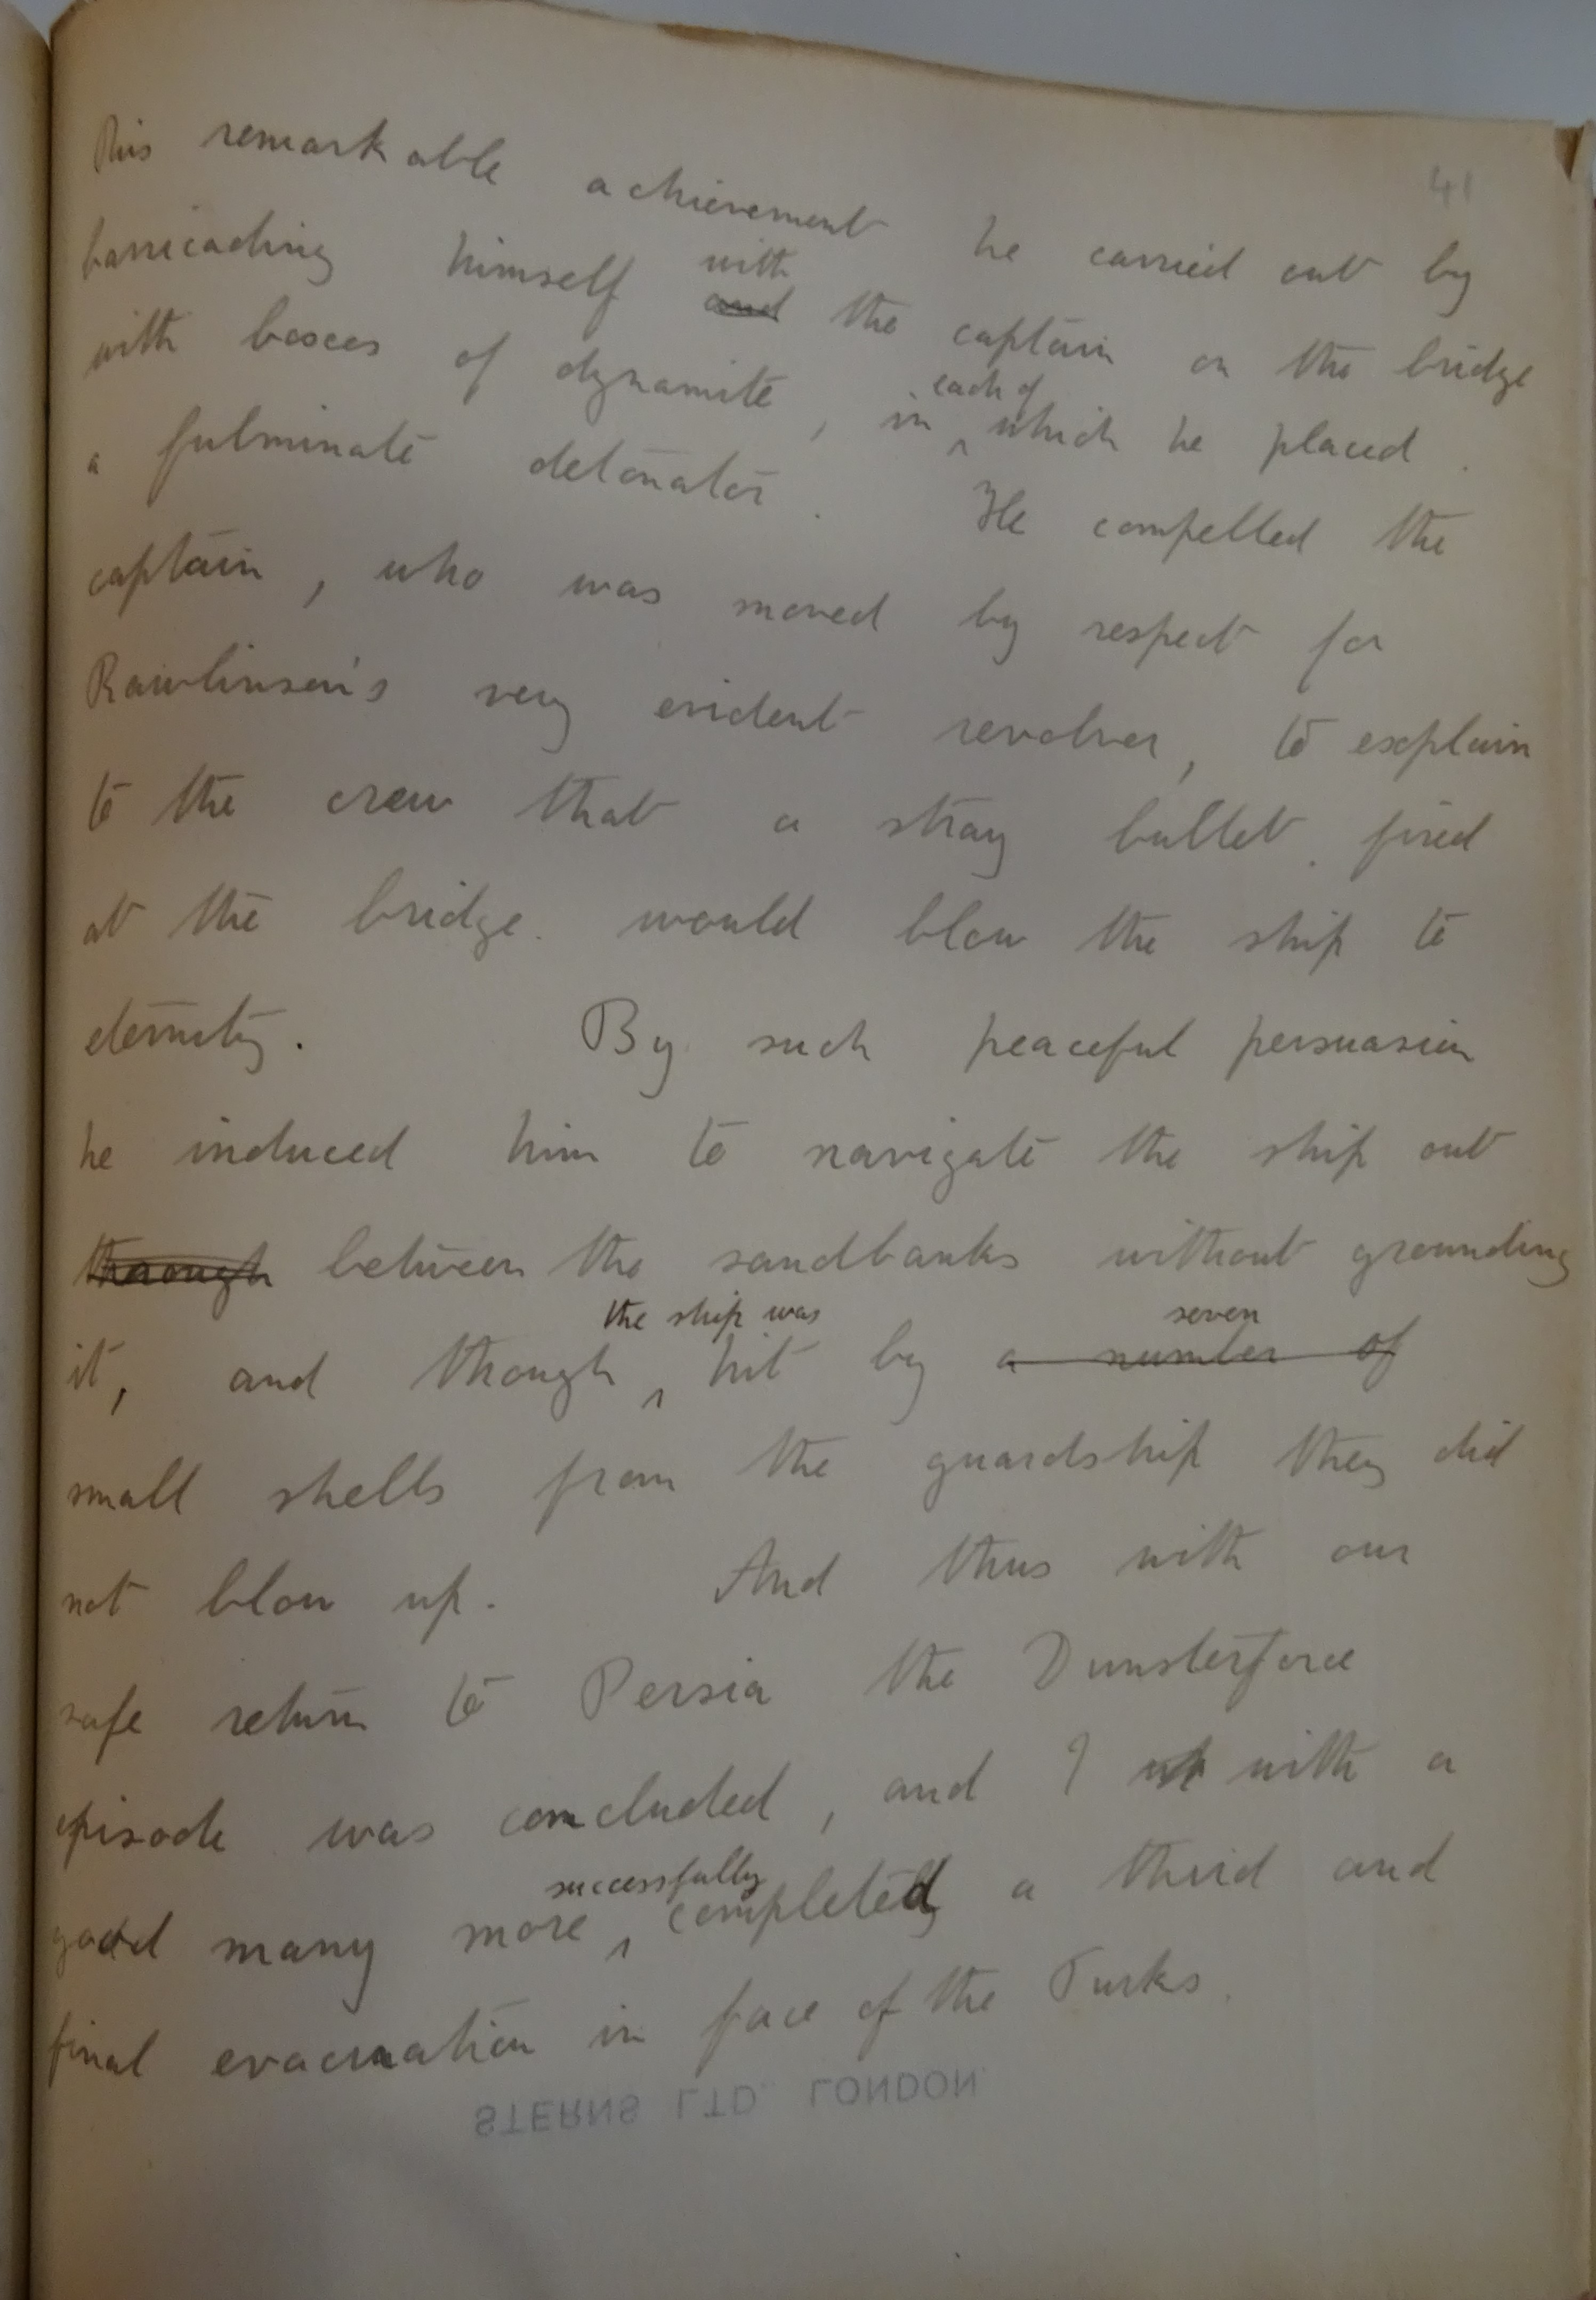 41
This remarkable achievement he carried out by
barricading himself with and the captain on the bridge
with boxes of dynamite, in each of which he placed
a fulminate detonator. He compelled the
captain, who was moved by respect for
Rawlinson's very evident revolver, to explain
to the crew that a stray bullet fired
at the bridge would blow the ship to
eternity. By such peaceful persuasion
he induced him to navigate the ship out
through between the sandbanks without grounding
it, and though the ship was hit by a number of seven
small shells from the guardship they did
not blow up. And thus with our
safe return to Persia the Dunsterforce
episode was concluded, and I with a
good many more successfully completed a third and
final evacuation in face of the Turks.
STERNS LTD LONDON